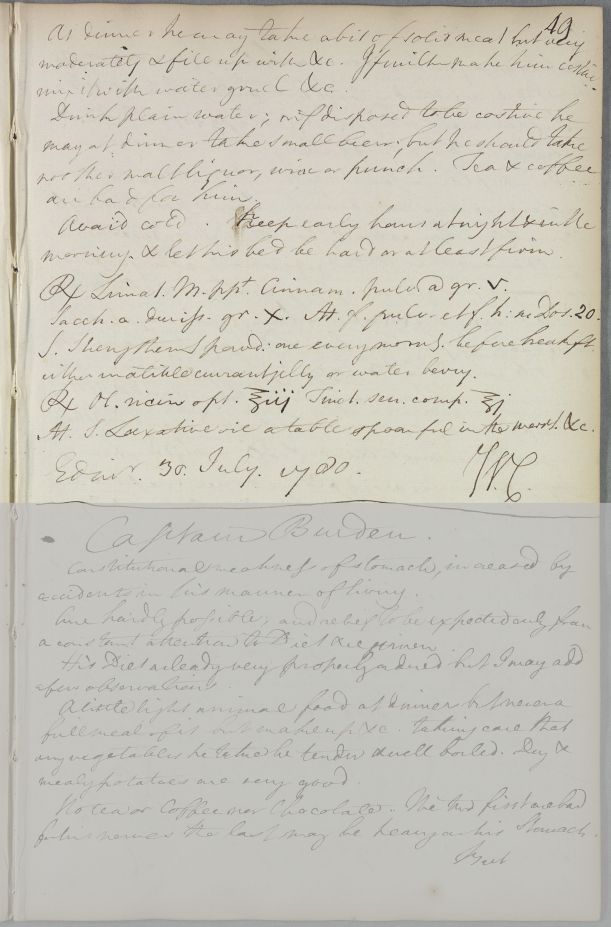 49
At dinner he may take a bit of solid meat but very
moderately & fill up with &c. If milk make him costive
mix it with water gruel &c.
Drink plain water; or if disposed to be costive he
may at dinner take small beer; but he should take
no other malt liquor, wine or punch. Tea & coffee
are bad for him.
Avoid cold. Keep early hours at night & in the
morning. & let his bed be hard or at least firm.
℞ Limat. M. ppt. Cinnam. pulv. a gr. v.
Sacch. a. duriss. gr. X. M. f. pulv. et f. h: m Dos. 20.
S. Strengthening powd: one every morng. before breakft.
either in a little currant jelly or water berry.
℞ Ol. ricin opt. ℥iij Tinct. sen. comp. ℥j
M. S. Laxative vic a table spoonful in the morng. &c.
Edinr. 30. July. 1780. W.C.
Captain Burden.
Constitutional weakness of stomach, increased by
accidents in his manner of living.
Cure hardly possible; and relief to be expected only from
a constant attention to Diet & regimen.
His Diet already very properly advised but I may add
a few observations.
A little light animal food at dinner but never a
full meal of it but make up &c. taking care that
any vegetables he takes be tender & well boiled. Dry &
mealy potatoes are very good.
No tea or Coffee nor Chocolate. The two first are bad
for his nerves the last may be heavy on his Stomach.
But